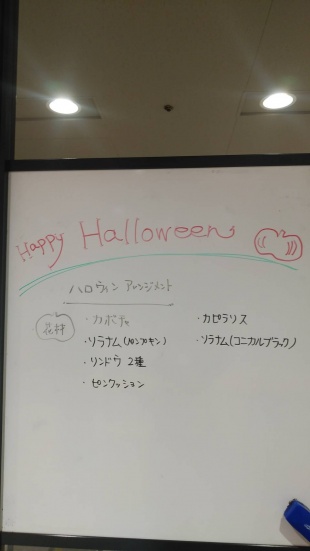 Happy Halloween
ハロウィン アレンジメント
花材
・カボチャ
・ソラナム(パンプキン)
・リンドウ 2種
・ピンクッション
・カピラリス
・ソラナム(コニカルブラック)